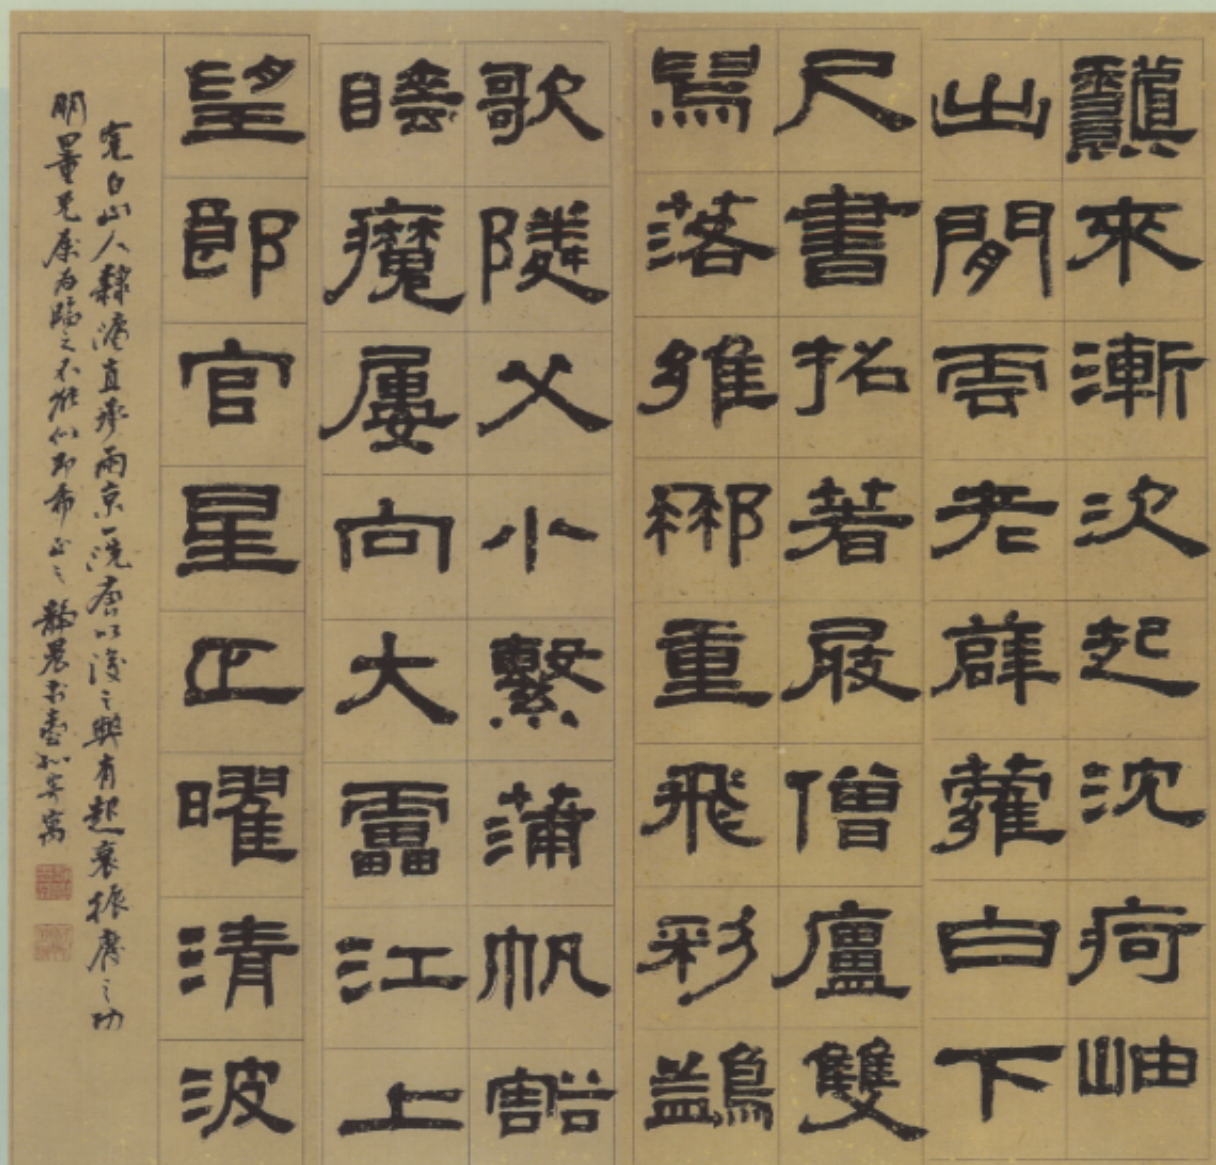 來漸次起沈疴岫
出閒雲老薜蘿白下
尺書招著屐僧廬雙
舄落維郴重飛彩鷁
歌隣父小繫蒲帆豁
魔屢向大靁江上
望郎官星正曜清波
完白山人隸灋直承兩京一洗唐以後之弊有起衰振靡之功
明量兄屬為臨之不能似即希正之 靜農於臺北寄寓